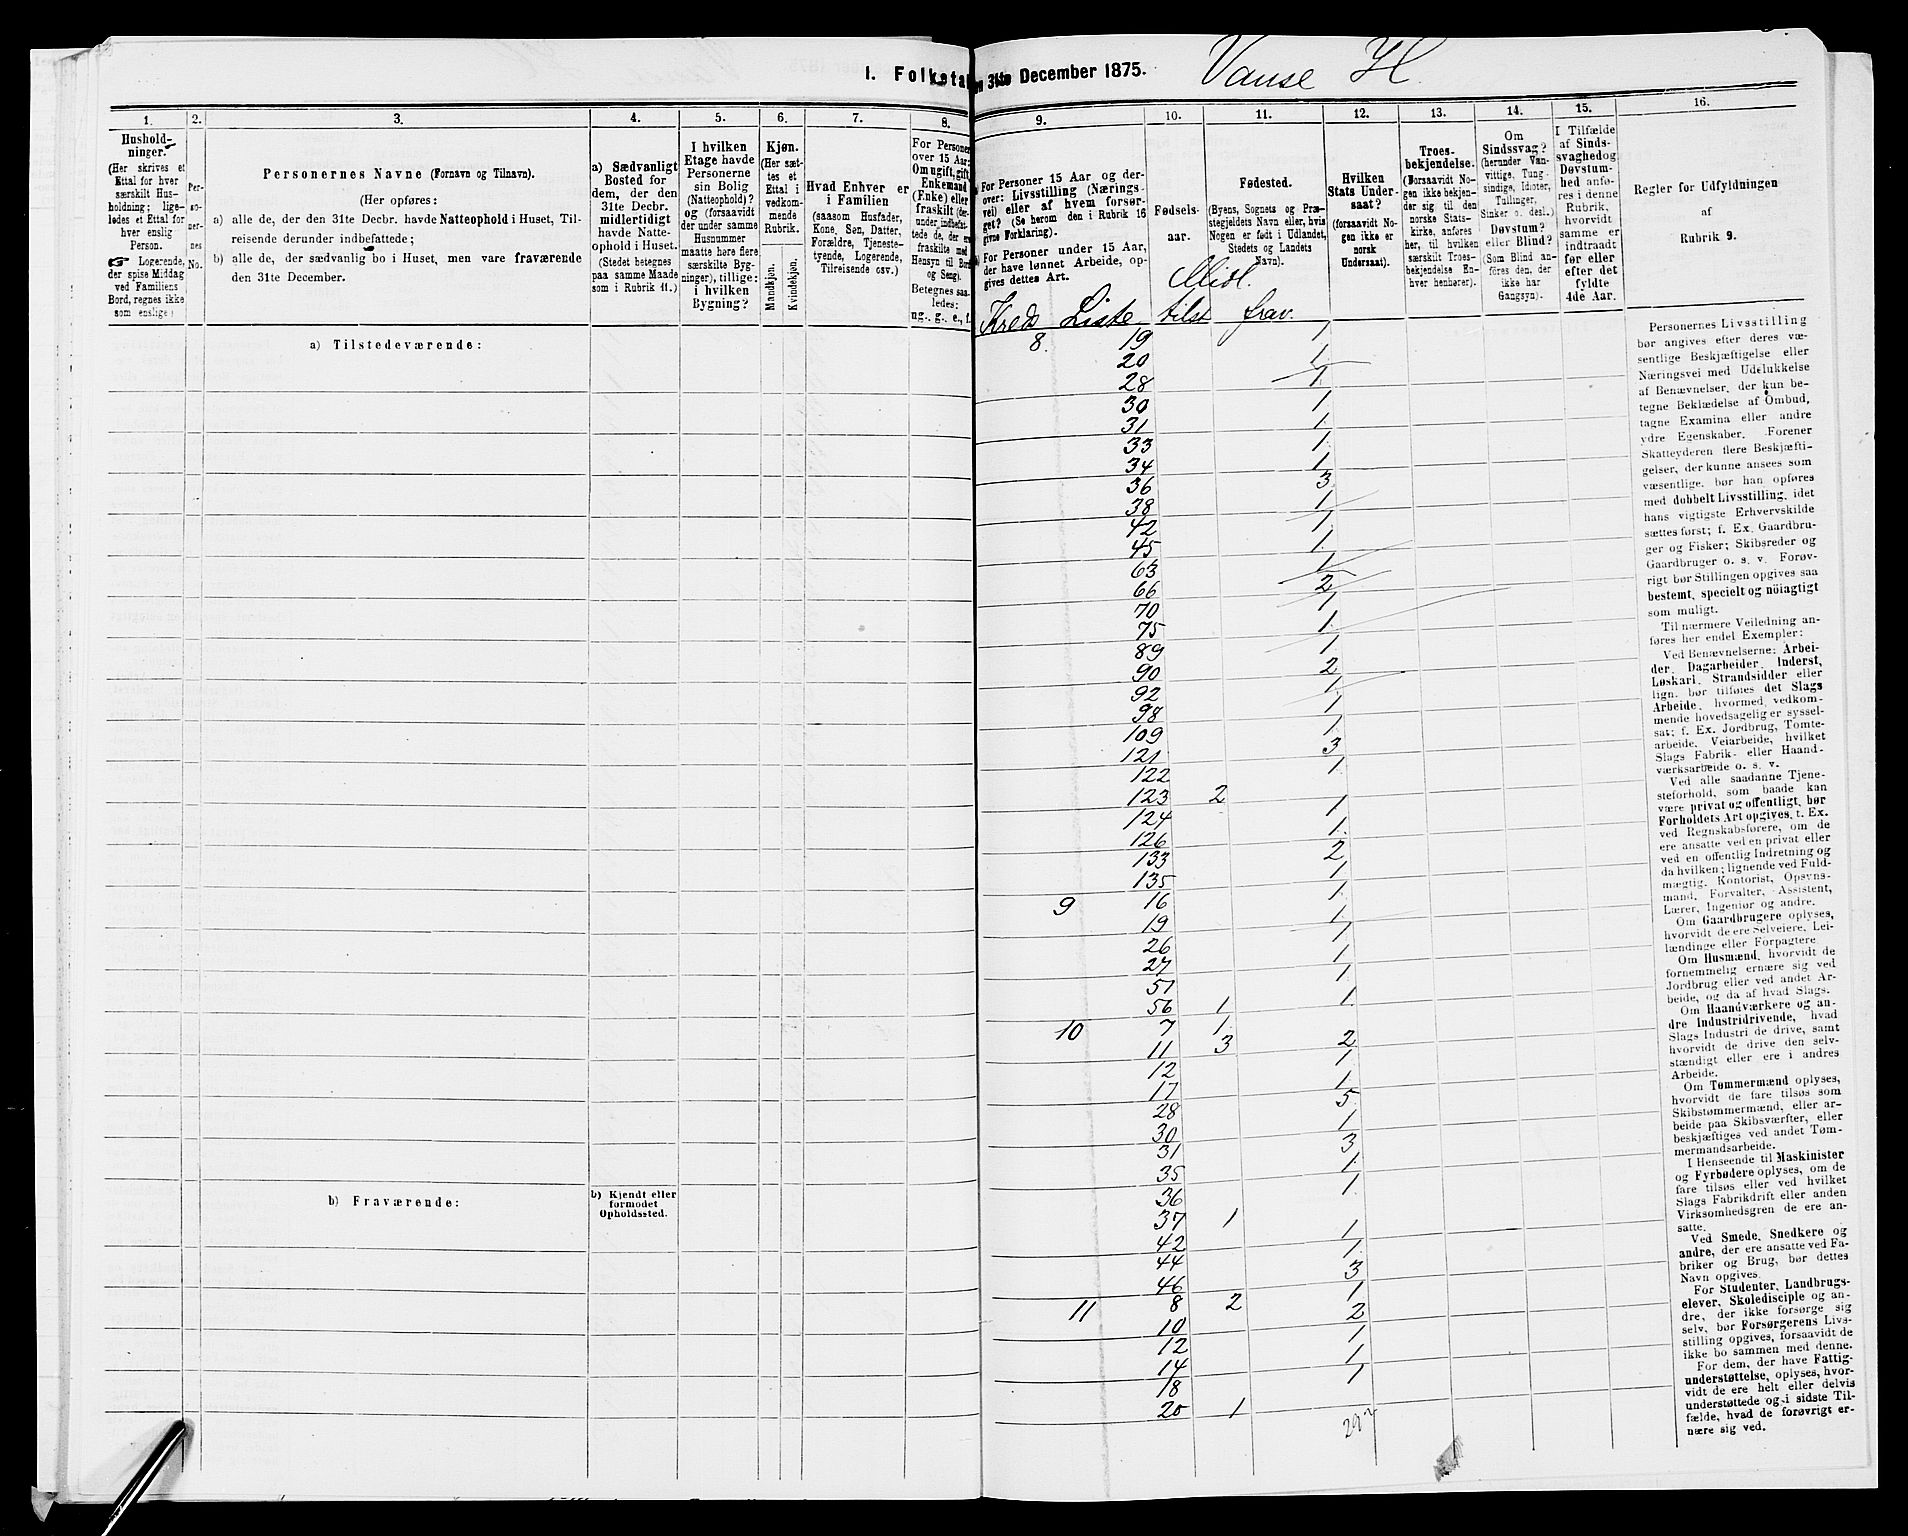 I. Folketal
en 31te December 1875.
Vanse H.
1.
Hushold-
ninger.
(Her skrives et
Ettal for hver
særskilt Hus-
holdning; lige-
ledes et Ettal for
hver enslig
Person.
☞ Logerende,
der spise Middag
ved Familiens
Bord, regnes ikke
som enslige)
2.
Per-
so-
ner-
nes
No.
3.
Personernes Navne (Fornavn og Tilnavn).
(Her opføres:
a) alle de, der den 31te Decbr. havde Natteophold i Huset, Til-
reisende derunder indbefattede;
b) alle de, der sædvanlig bo i Huset, men vare fraværende
den 31te December.
4.
a) Sædvanligt
Bosted for
dem, der den
31te Decbr.
midlertidigt
havde Natte-
ophold i Huset.
(Stedet betegnes
paa samme Maade
som i Rubrik 11.)
5.
I hvilken
Etage havde
Personerne
sin Bolig
(Natteophold)?
og (forsaavidt
der under samme
Husnummer
maatte høre flere
særskilte Byg-
ninger), tillige:
i hvilken
Bygning?
6.
Kjøn.
(Her sæt-
tes et
Ettal i
vedkom-
mende
Rubrik.
Mandkjøn.
Kvindekjøn.
7.
Hvad Enhver er
i Familien
(saasom Husfader,
Kone, Søn, Datter,
Forældre, Tjeneste-
tyende, Logerende,
Tilreisende osv.)
8.
For Personer
over 15 Aar:
Om ugift, gift,
Enkemand
(Enke) eller
fraskilt (der-
under indbefat-
tede de, der er
fraskilte med
Hensyn til Bord
og Seng).
Betegnes saa-
ledes:
ug., g., e., f.
9.
a) For Personer 15 Aar og der-
over: Livsstilling (Nærings-
vei) eller af hvem forsør-
get? (Se herom den i Rubrik 16
givne Forklaring).
b) For Personer under 15 Aar,
der have lønnet Arbeide, op-
gives dettes Art.
10.
Fødsels-
aar.
11.
Fødested.
(Byens, Sognets og Præ-
stegjeldets Navn eller, hvis
Nogen er født i Udlandet,
Stedets og Landets
Navn).
12.
Hvilken
Stats Under-
saat?
(forsaavidt No-
gen ikke er
norsk
Undersaat).
13.
Troes-
bekjendelse.
(Forsaavidt No-
gen ikke bekjen-
der sig til den
norske Stats-
kirke, anføres
her, til hvilken
Troesbekjendelse En-
hver henhører).
14.
Om
Sindssvag?
(herunder Van-
vittige, Tung-
sindige, Idioter,
Tullinger,
Sinker o. desl.)
Døvstum?
eller Blind?
(Som Blind an-
føres den, der
ikke har
Gangsyn).
15.
I Tilfælde
af Sinds-
svaghed og
Døvstum-
hed anfø-
res i denne
Rubrik,
hvorvidt
samme er
indtraadt
før eller
efter det
fyldte
4de Aar.
16.
Regler for Udfyldningen
af
Rubrik 9.
Midl.
Kreds Liste tilst frav.
a) Tilstedeværende:
8. 19 1
20 1
28 1
30 1
31 1
33 1
34 1
36 3
38 1
42 1
45 1
63 1
66 2
70 1
75 1
89 1
90 2
92 1
98 1
109 1
121 3
122 1
123 2
124 1
126 1
133 2
135 1
9 16 1
19 1
26 1
27 1
51 1
56 1 1
10 7 1
11 3 2
12 1
17 1
28 5
30 1
31 3
35 1
36 1
37 1
42 1
44 1
46 3
11 8 2 1
10 2
12 1
14 1
18 1
20 1
b) Fraværende:
b) Kjendt eller
formodet
Opholdssted.
Personernes Livsstilling
bør angives efter deres væ-
sentlige Beskjæftigelse eller
Næringsvei med Udelukkelse
af Benævnelser, der kun be-
tegne Beklædelse af Ombud,
tagne Examina eller andre
ydre Egenskaber. Forener
Skatteyderen flere Beskjæfti-
gelser, der kunne ansees som
væsentlige, bør han opføres
med dobbelt Livsstilling, idet
hans vigtigste Erhvervskilde
sættes først; f. Ex. Gaardbru-
ger og Fisker; Skibsreder og
Gaardbruger o. s. v. Forøv-
rigt bør Stillingen opgives saa
bestemt, specielt og nöiagtigt
som muligt.
Til nærmere Veiledning an-
føres her endel Exempler:
Ved Benævnelserne: Arbei-
der, Dagarbeider, Inderst,
Løskarl, Strandsidder eller
lign. bør tilføies det Slags
Arbeide, hvormed vedkom-
mende hovedsagelig er syssel-
sat; f. Ex. Jordbrug, Tomte-
arbeide, Veiarbeide, hvilket
Slags Fabrik- eller Haand-
værksarbeide o. s. v.
Ved alle saadanne Tjene-
steforhold, som baade kan
være privat og offentligt, bør
Forholdets Art opgives, t. Ex.
ved Regnskabsførere, om de
ere ansatte ved en privat eller
ved en offentlig Indretning og
da hvilken; lignende ved Fuld-
mægtig, Kontorist, Opsyns-
mand, Forvalter, Assistent,
Lærer, Ingeniør og andre.
Om Gaardbrugere oplyses,
hvorvidt de ere Selveiere, Lei-
lændinge eller Forpagtere
Om Husmænd, hvorvidt de
fornemmelig ernære sig ved
Jordbrug eller ved andet Ar-
beide, og da af hvad Slags.
Om Haandværkere og an-
dre Industridrivende, hvad
Slags Industri de drive, samt
hvorvidt de drive den selv-
stændigt eller ere i andres
Arbeide.
Om Tømmermænd oplyses,
hvorvidt de fare tilsøs som
Skibstømmermænd, eller ar-
beide paa Skibsværfter, eller
beskjæftiges ved andet Tøm-
mermandsarbeide.
I Henseende til Maskinister
og Fyrbødere oplyses, om de
fare tilsøs eller ved hvilket
Slags Fabrikdrift eller anden
Virksomhedsgren de ere an-
satte.
Ved Smede, Snedkere og
andre, der ere ansatte ved Fa-
briker og Brug, bør dettes
Navn opgives.
For Studenter, Landbrugs-
elever, Skoledisciple og an-
dre, der ikke forsørge sig
selv, bør Forsørgerens Livs-
stilling opgives, forsaavidt de
ikke bo sammen med denne.
For dem, der have Fattig-
understøttelse, oplyses, hvor-
vidt de ere helt eller delvis
understøttede og i sidste Til-
fælde, hvad de forøvrigt er-
nære sig ved.